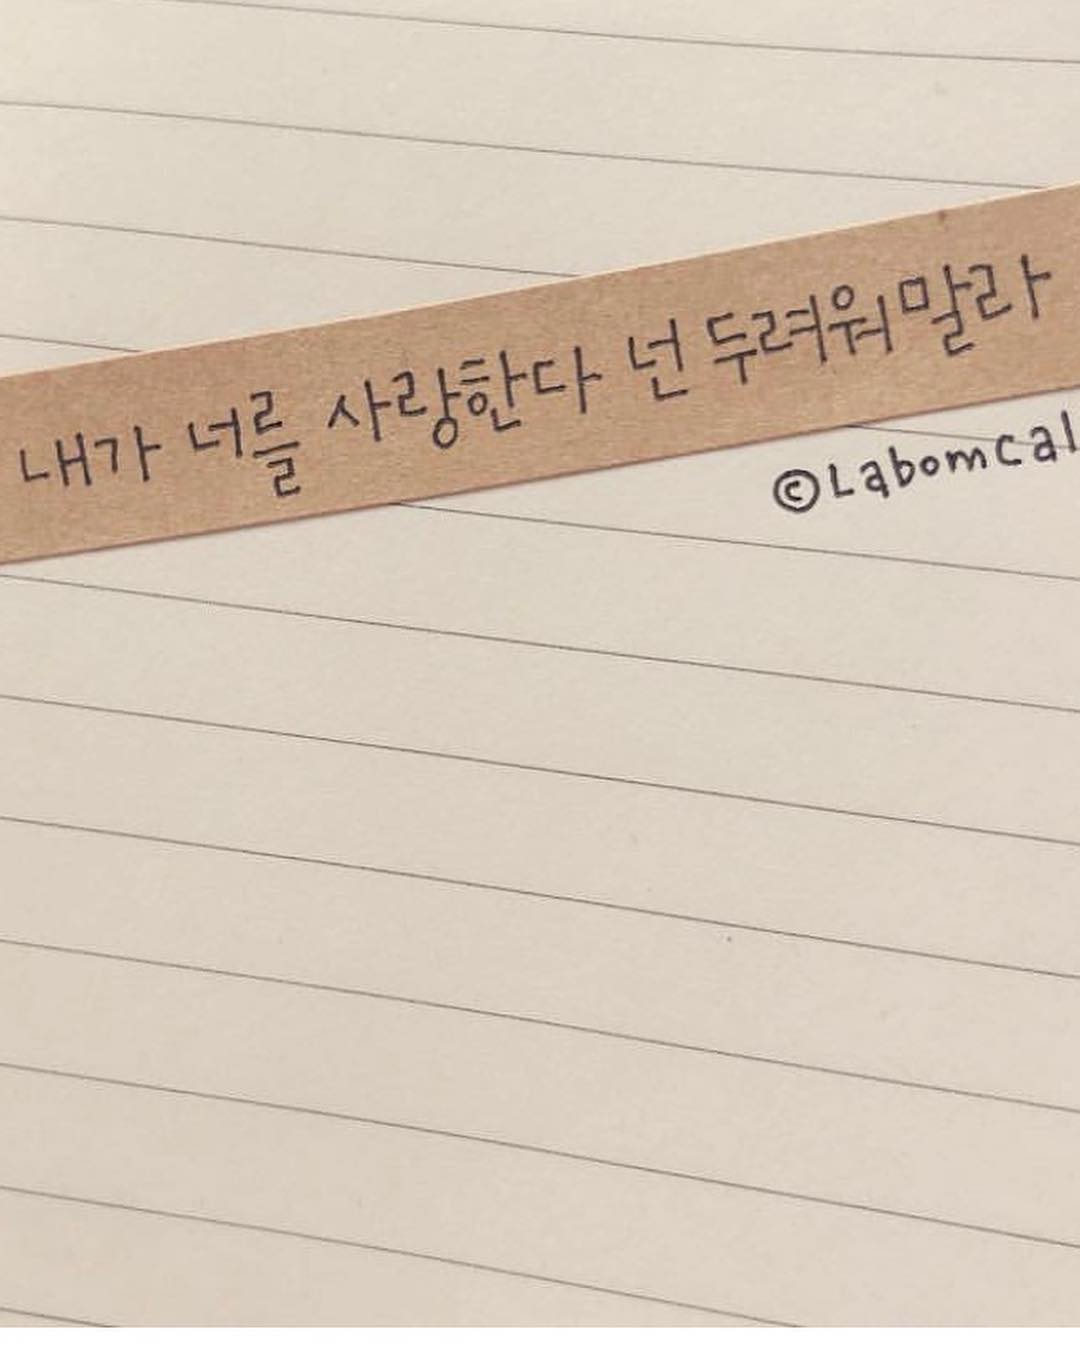 내가 너를 사랑한다 넌 두려워말라
©Labomcal